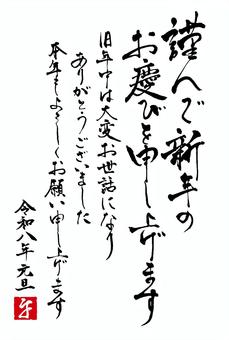 謹んで新年の
お慶びを申し上げます
旧年中は大変お世話になり
ありがとうございました
本年もよろしくお願い申し上げます
令和八年元旦